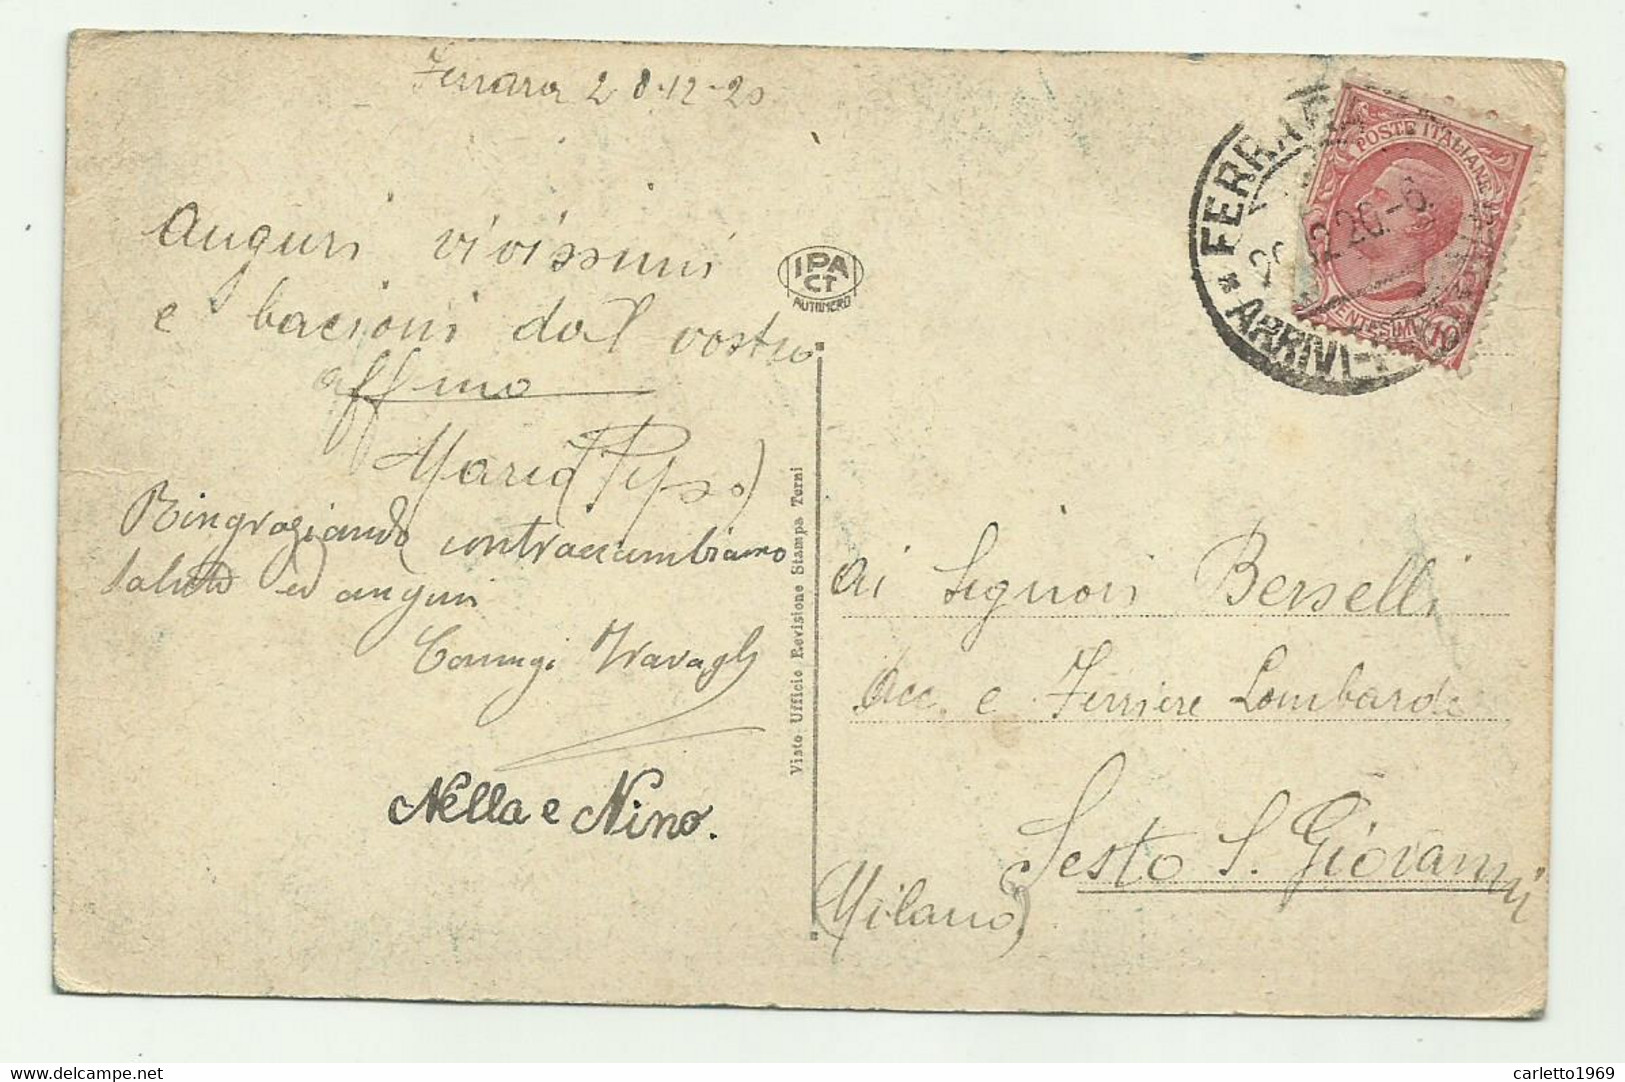 Ferrara 28-12-20
Auguri vivissimi
e bacioni dal vostro
affmo
Mario (Pipso)
Ringraziando contraccambiamo
saluti ed auguri
Coniugi Travagli
Nella e Nino.
IPA
CT
AUTUNNO
Visto Ufficio Revisione Stampa Terni
FERRARA
ARRIVI-P
12 20.-6
POSTE ITALIANE
CENTESIMI 10
Ai Signori Berselli
Acc. e Ferriere Lombarde
Sesto S. Giovanni
(Milano)
www.delcampe.net
carletto1969